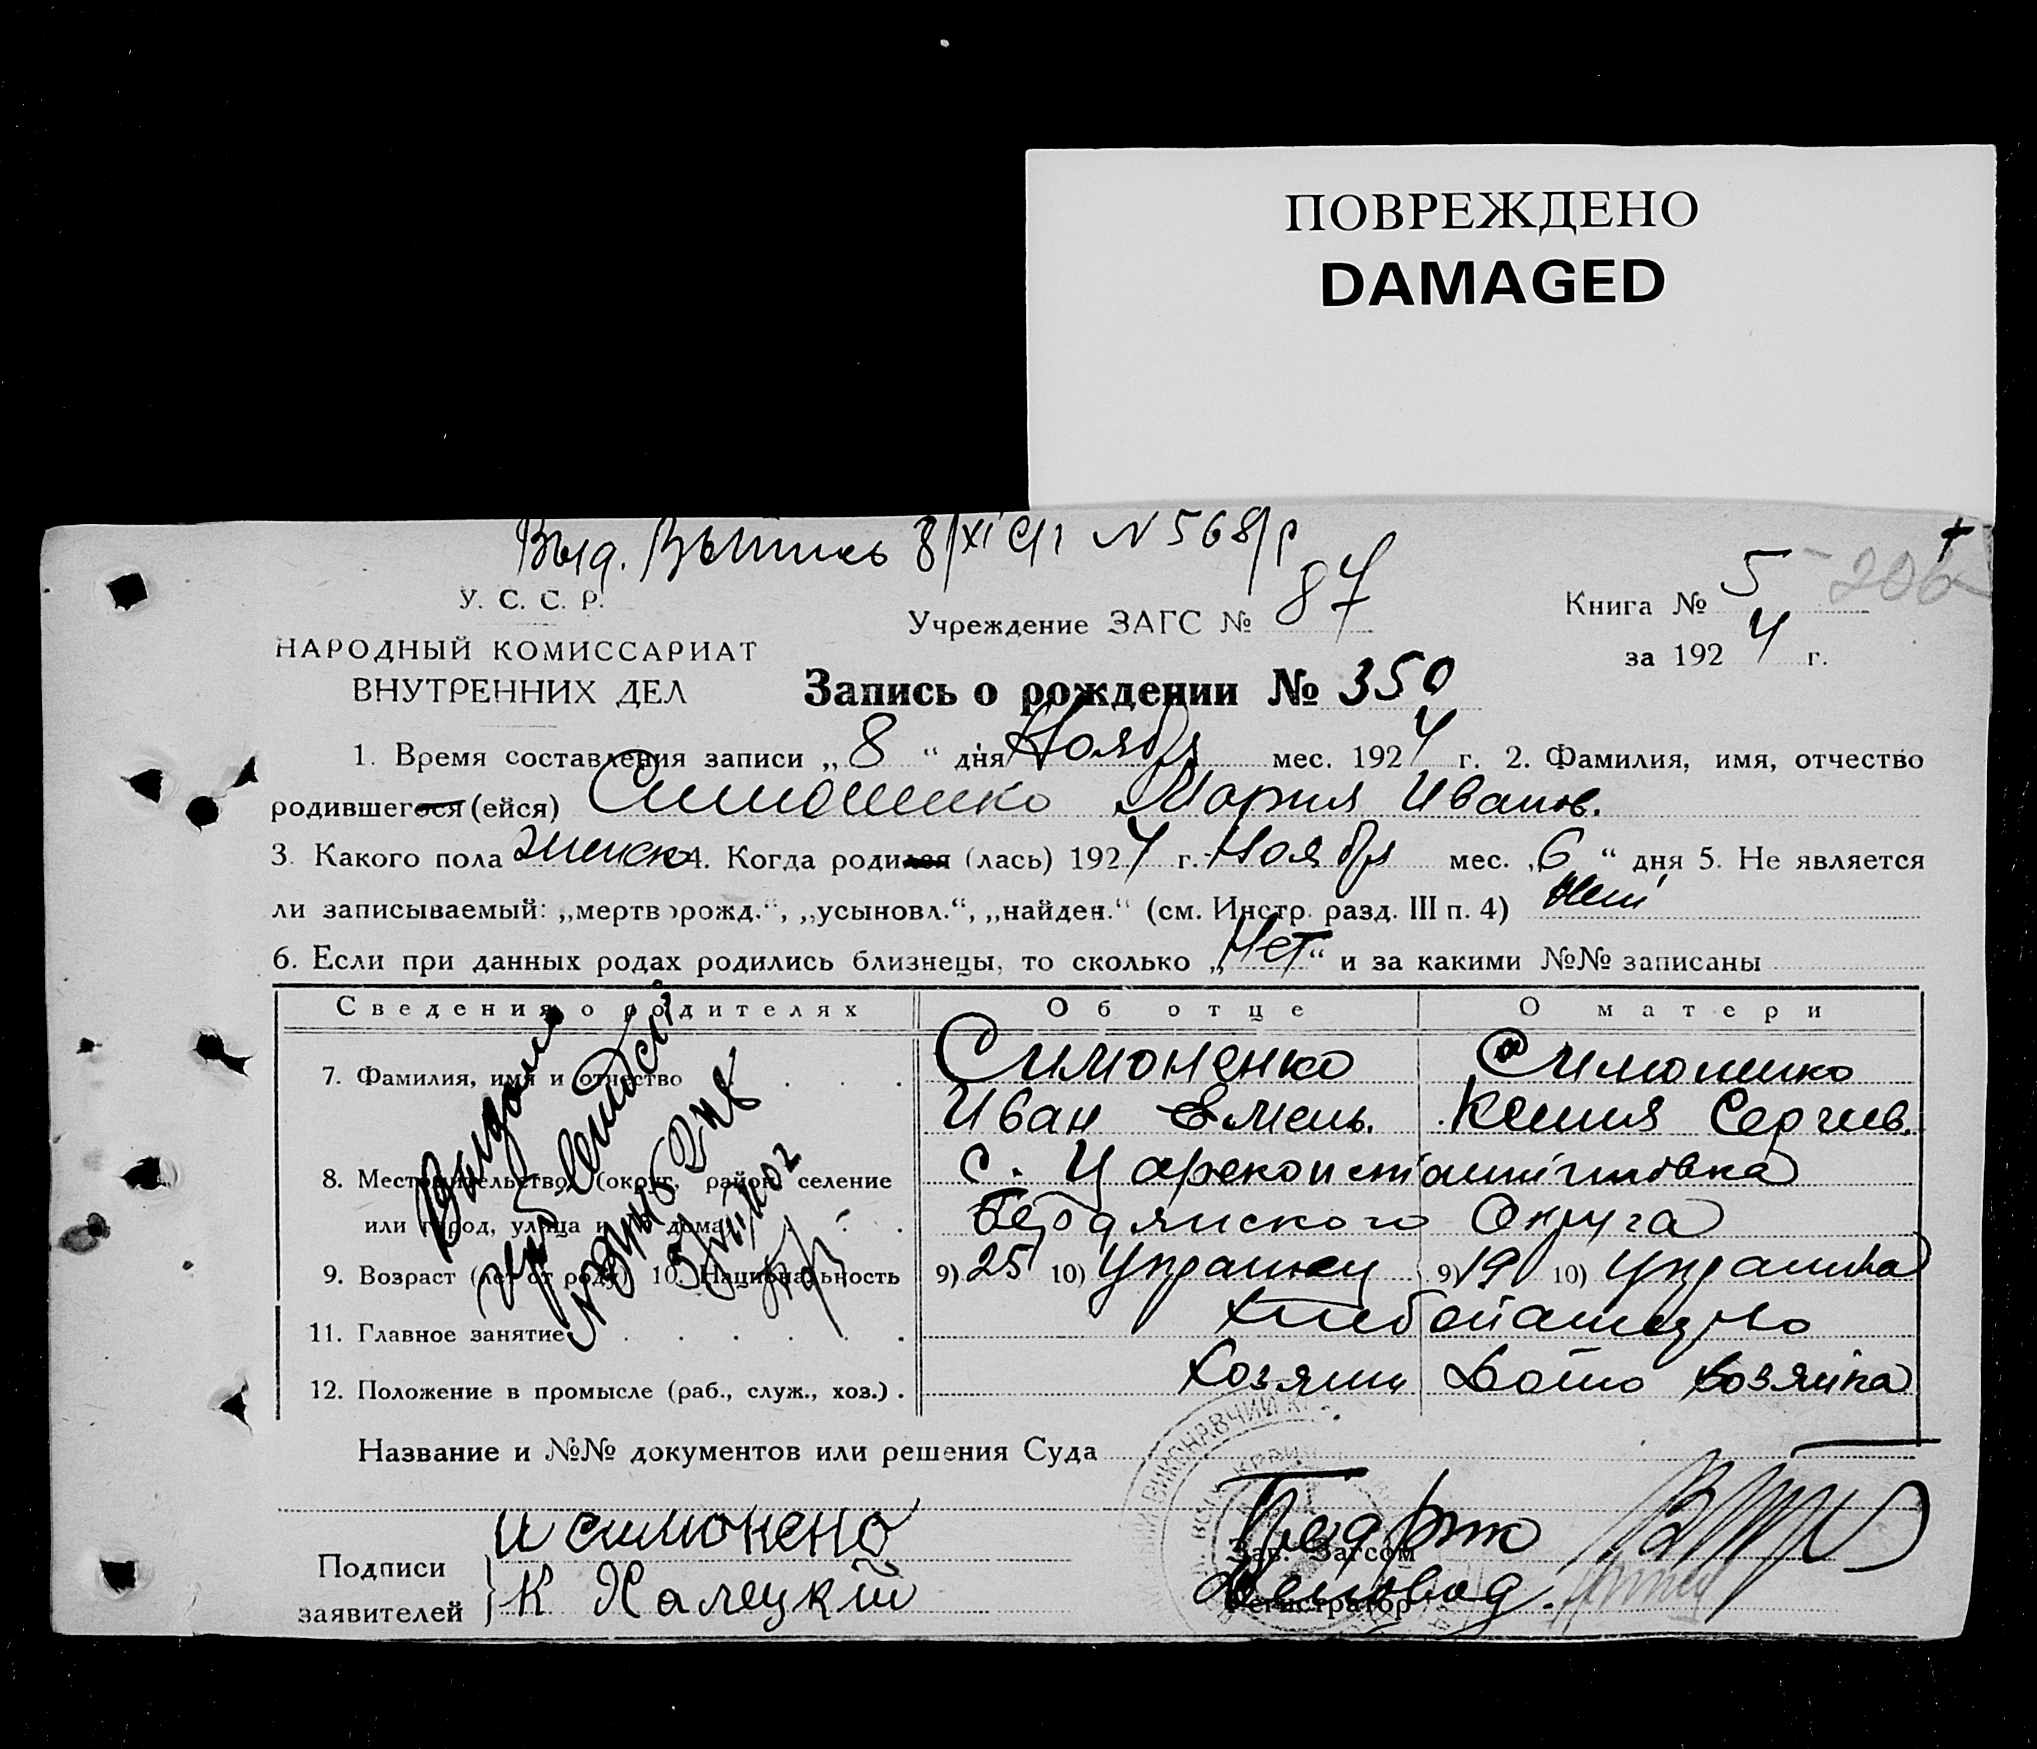 ПОВРЕЖДЕНО
DAMAGED
Выд. Выпись 8/XI с/г N 568/р
У. С. С. Р.
НАРОДНЫЙ КОМИССАРИАТ
ВНУТРЕННИХ ДЕЛ
Учреждение ЗАГС № 87
Книга № 5 206
за 1924 г.
Запись о рождении № 350
1. Время составления записи „8“ дня Ноября мес. 1924 г. 2. Фамилия, имя, отчество
родившегося (ейся) Симоненко Мария Иванов.
3. Какого пола женск 4. Когда родился (лась) 1924 г. Ноября мес. „6“ дня 5. Не является
ли записываемый: „мертворожд.“, „усыновл.“, „найден.“ (см. Инстр. разд. III п. 4) Нет
6. Если при данных родах родились близнецы, то сколько „Нет“ и за какими №№ записаны
Сведения о родителях Об отце О матери
7. Фамилия, имя и отчество Симоненко Симоненко
Иван Емель. Ксения Сергеев.
8. Местожительство (округ, район, селение с. Цареконстантиновка
или город, улица и № дома) Бердянского Округа
9. Возраст (лет от роду) 10. Национальность 9) 25 10) Украинец 9) 19 10) Украинка
11. Главное занятие Хлебопашество
12. Положение в промысле (раб., служ., хоз.) Хозяин Домо хозяйка
Название и №№ документов или решения Суда
Подписи
заявителей
И симонено
К Халецкий
Зав. Загсом
Регистратор Деловод.